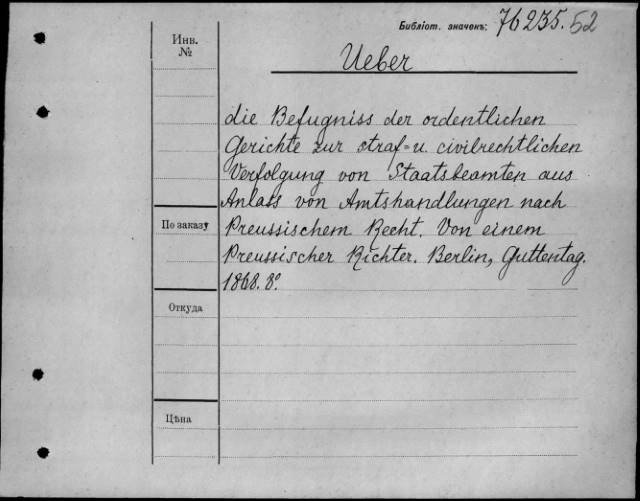 Библіот. значекъ: 76235.52
Инв.
№
Ueber
die Befugniss der ordentlichen
Gerichte zur straf=u. civilrechtlichen
Verfolgung von Staatsbeamten aus
Anlass von Amtshandlungen nach
По заказу
Preussischem Recht. Von einem
Preussischer Richter. Berlin, Guttentag.
1868. 8º.
Откуда
Цѣна